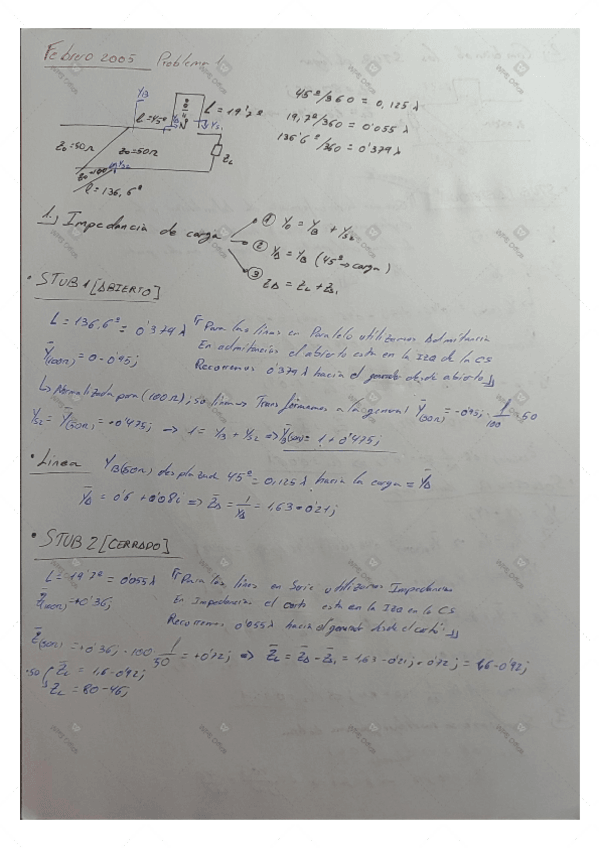 Febrero 2005 Problema 1.
Y13
l = 45º
l = 19'7º
Z0=50Ω
Z0=50Ω
Z0=100
ZL
l = 136,6º
45º/360 = 0,125 λ
19,7º/360 = 0'055 λ
136'6º/360 = 0'379 λ
1.) Impedancia de carga
① Y0 = YB + YS2
② YA = YB (45º → carga)
③ ZA = ZL + ZS1
• STUB 1 [ABIERTO]
L = 136,6º = 0'379 λ
Para las líneas en Paralelo utilizamos Admitancia
En admitancias el abierto esta en la IZQ de la CS
Recorremos 0'379 λ hacia el generador desde abierto
Y(100Ω) = 0 - 0'95j
↳ Normalizada para (100Ω); 50 líneas Transformamos a la general Y(50Ω) = -0'95j · 1/100 · 50
YS2 = Y(50Ω) = +0'475j → 1 = YB + YS2 ⇒ YB(50Ω) = 1 + 0'475j
• Línea YB(50Ω) desplazada 45º = 0,125 λ hacia la carga = YA
YA = 0'6 + 0'08j ⇒ ZA = 1/YA = 1,63 - 0'21j
• STUB 2 [CERRADO]
L = 19'7º = 0'055 λ
Para las líneas en Serie utilizamos Impedancias
En Impedancias el corto esta en la IZQ en la CS
Recorremos 0'055 λ hacia el generador desde el corto
Z(100Ω) = +0'36j
Z(50Ω) = +0'36j · 100 · 1/50 = +0'72j ⇒ ZL = ZA - ZS1 = 1,63 - 0'21j + 0'72j = 1,6 - 0'92j
·50 ZL = 1,6 - 0'92j
ZL = 80 - 46j